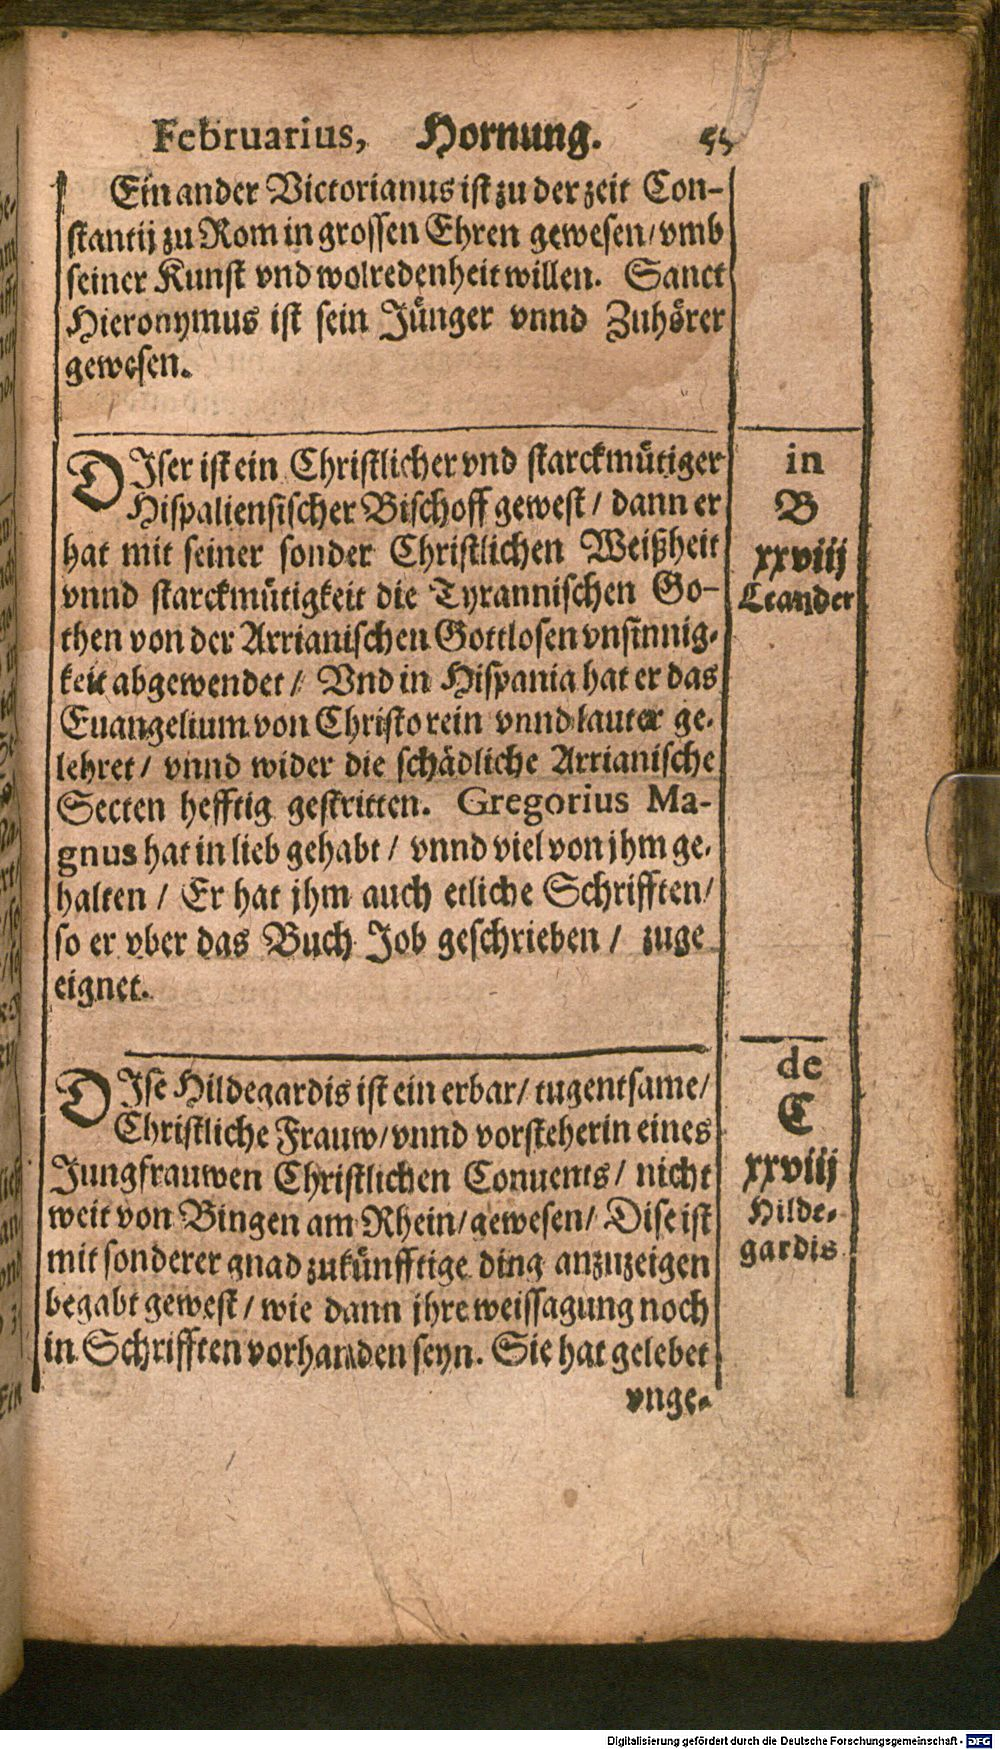 Februarius, Hornung. 55
Ein ander Victorianus ist zu der zeit Con-
stantij zu Rom in grossen Ehren gewesen/ vmb
seiner Kunst vnd wolredenheit willen. Sanct
Hieronymus ist sein Jünger vnnd Zuhörer
gewesen.
DIser ist ein Christlicher vnd starckmütiger
Hispaliensischer Bischoff gewest / dann er
hat mit seiner sonder Christlichen Weißheit
vnnd starckmütigkeit die Tyrannischen Go-
then von der Arrianischen Gottlosen vnsinnig-
keit abgewendet / Vnd in Hispania hat er das
Euangelium von Christo rein vnnd lauter ge-
lehret / vnnd wider die schädliche Arrianische
Secten hefftig gestritten. Gregorius Ma-
gnus hat in lieb gehabt / vnnd viel von jhm ge-
halten / Er hat jhm auch etliche Schrifften/
so er vber das Buch Job geschrieben / zuge
eignet.
in
B
xxviij
Leander
DIse Hildegardis ist ein erbar/ tugentsame/
Christliche Frauw/ vnnd vorsteherin eines
Jungfrauwen Christlichen Conuents / nicht
weit von Bingen am Rhein/ gewesen/ Dise ist
mit sonderer gnad zukünfftige ding anzuzeigen
begabt gewest / wie dann jhre weissagung noch
in Schrifften vorhanden seyn. Sie hat gelebet
vnge-
de
C
xxviij
Hilde-
gardis
Digitalisierung gefördert durch die Deutsche Forschungsgemeinschaft - DFG